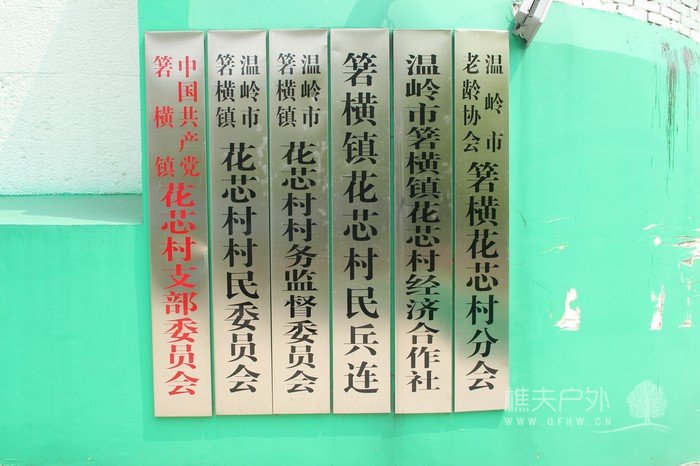 中国共产党
箬横镇
花芯村支部委员会
温岭市
箬横镇
花芯村村民委员会
温岭市
箬横镇
花芯村村务监督委员会
箬横镇花芯村民兵连
温岭市箬横镇花芯村经济合作社
温岭市
老龄协会
箬横花芯村分会
樵夫户外
WWW.QFHW.CN